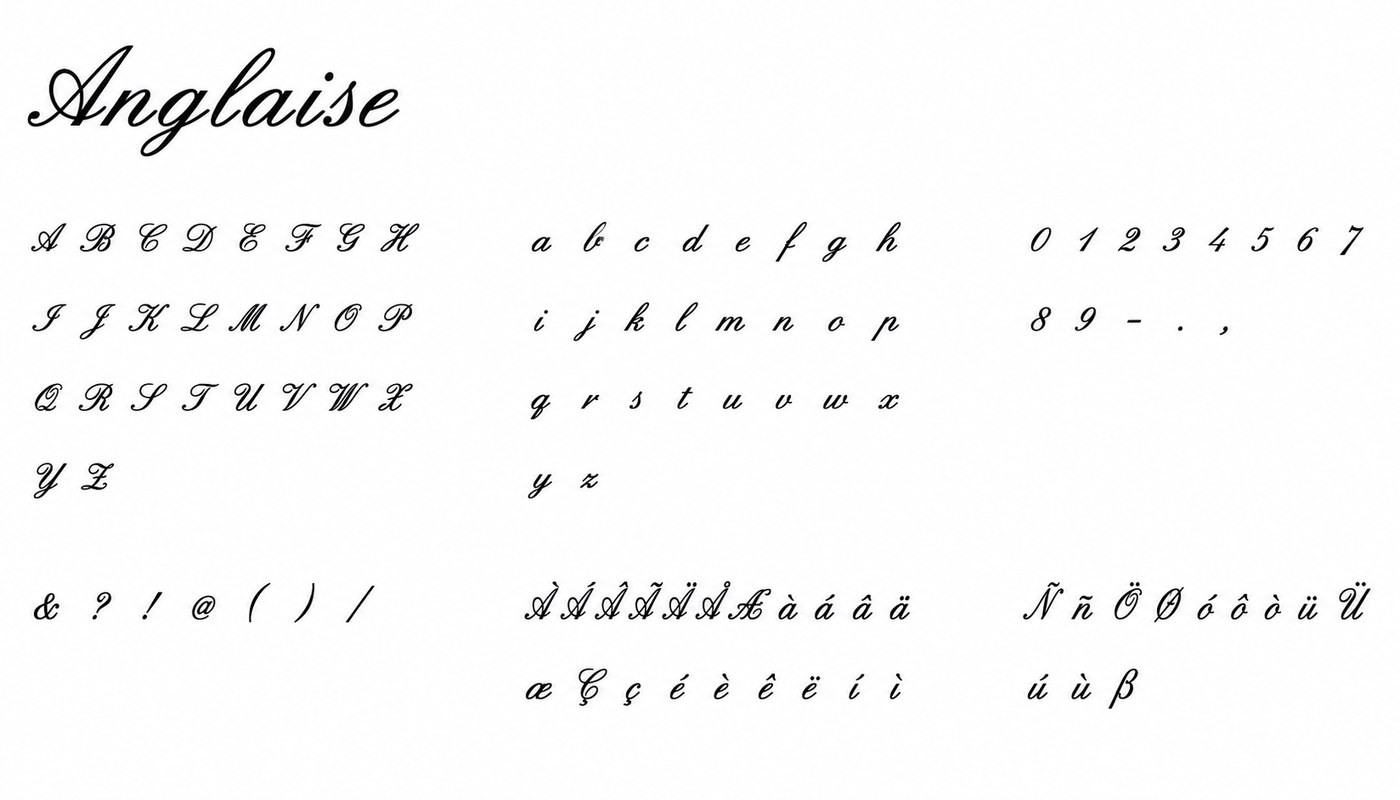 Anglaise
A B C D E F G H
I J K L M N O P
Q R S T U V W X
Y Z
a b c d e f g h
i j k l m n o p
q r s t u v w x
y z
0 1 2 3 4 5 6 7
8 9 - . ,
& ? ! @ ( ) /
À Á Â Ã Ä Å Æ à á â ä
æ Ç ç é è ê ë í ì
Ñ ñ Ö Ø ó ô ò ü Ü
ú ù β